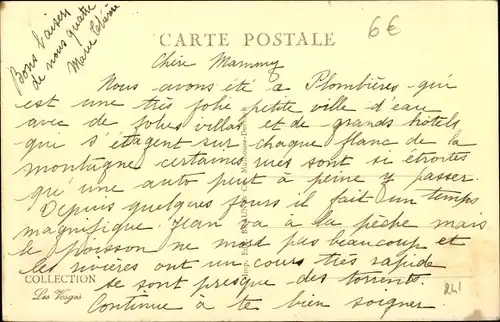 6€
CARTE POSTALE
Bons baisers
de nous quatre
Marie
Chère Mammy
Nous avons été a Plombières qui
est une très jolie petite ville d'eau
avec de jolies villas et de grands hôtels
qui s'étagent sur chaque flanc de la
montagne certaines rues sont si étroites
qu'une auto peut à peine y passer.
Depuis quelques jours il fait un temps
magnifique. Jean va à la pêche mais
le poisson ne mord pas beaucoup et
les rivières ont un cours très rapide
se sont presque des torrents.
Continue à te bien soigner.
COLLECTION
Les Vosges
Imp. Mulhouse